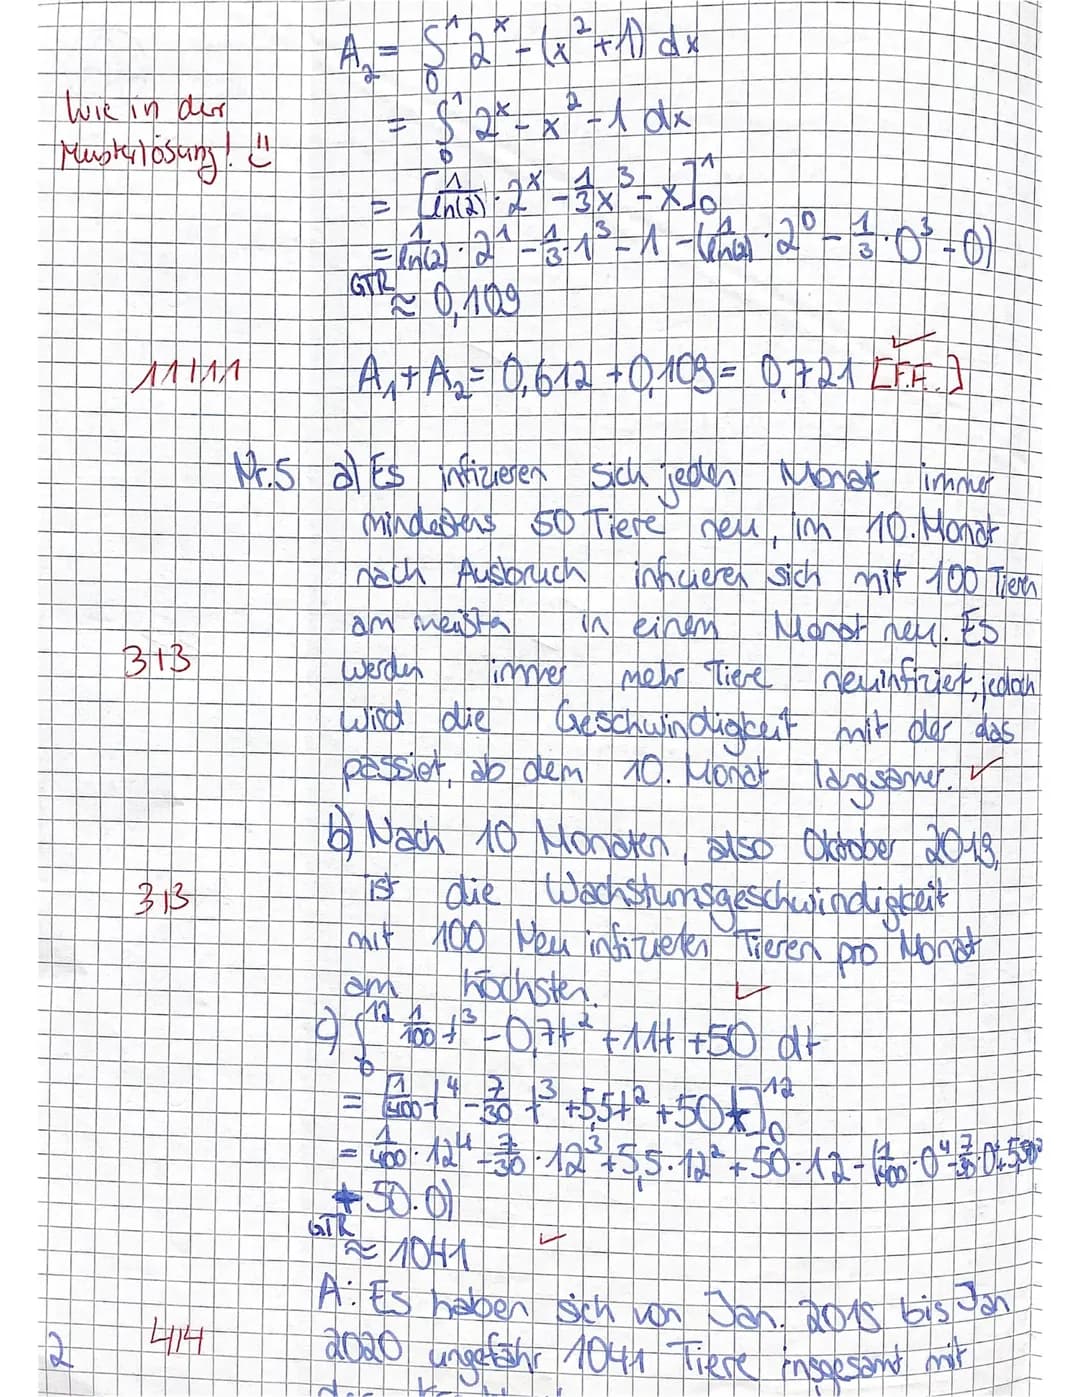 A₂ = ∫₀¹ 2ˣ - (x² + 1) dx
Wie in der
= ∫₀¹ 2ˣ - x² - 1 dx
Musterlösung! :)
= [1/ln(2) · 2ˣ - 1/3 x³ - x]₀¹
= 1/ln(2) · 2¹ - 1/3 · 1³ - 1 - (1/ln(2) · 2⁰ - 1/3 · 0³ - 0)
GTR
≈ 0,109
11/11 A₁ + A₂ = 0,612 + 0,109 = 0,721 [F.E.] ✓
Nr.5 a) Es infizieren sich jeden Monat immer
mindestens 50 Tiere neu, im 10. Monat
nach Ausbruch infizieren sich mit 100 Tieren
am meisten in einem Monat neu. Es
3/3 werden immer mehr Tiere neuinfiziert, jedoch
wird die Geschwindigkeit mit der das
passiert, ab dem 10. Monat langsamer. ✓
b) Nach 10 Monaten, also Oktober 2019,
3/3 ist die Wachstumsgeschwindigkeit
mit 100 Neu infizierten Tieren pro Monat
am höchsten. ✓
c) ∫₀¹² 1/100 t³ - 0,7t² + 11t + 50 dt
= [1/400 t⁴ - 7/30 t³ + 5,5t² + 50t]₀¹²
= 1/400 · 12⁴ - 7/30 · 12³ + 5,5 · 12² + 50 · 12 - (1/400 · 0⁴ - 7/30 · 0³ + 5,5 · 0²
+ 50 · 0)
GTR
≈ 1041 ✓
A: Es haben sich von Jan. 2019 bis Jan
2 4/4 2020 ungefähr 1041 Tiere insgesamt mit